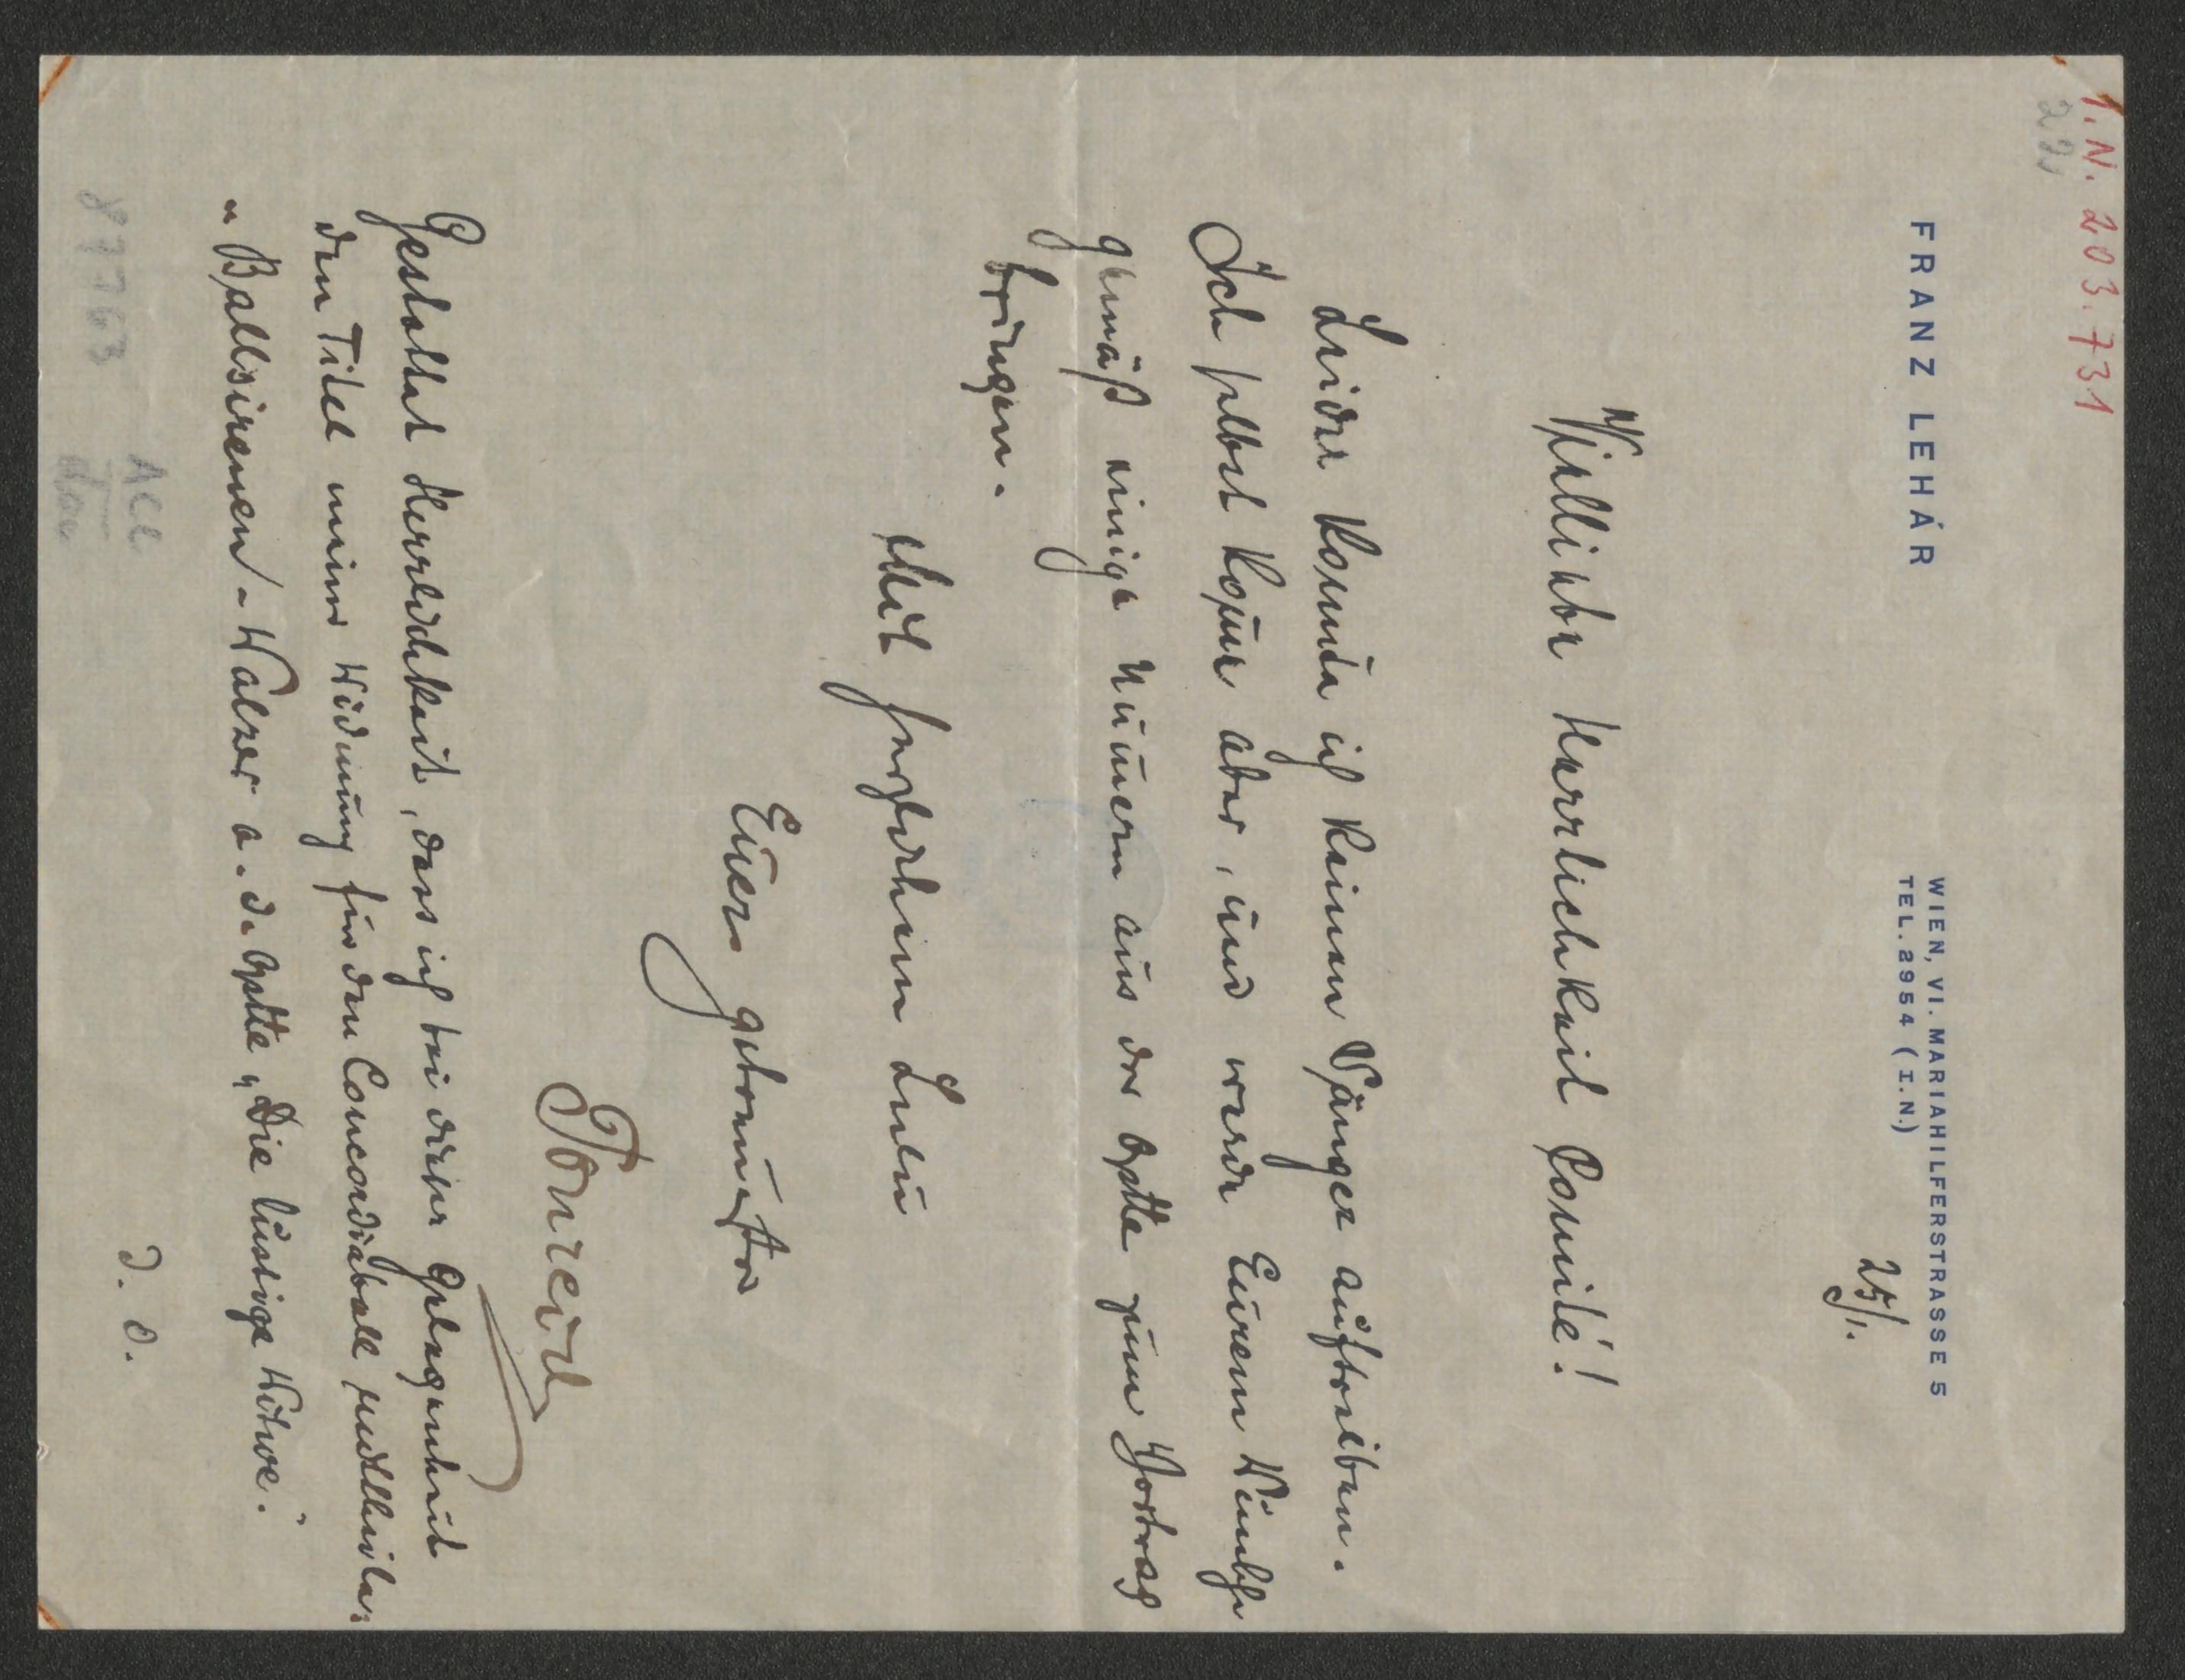 I. N. 203.731
22
FRANZ LEHÁR
WIEN, VI. MARIAHILFERSTRASSE 5
TEL. 2954 (I.N.)
25/1.
Vielliebe Herrlichkeit Comité!
Leider konnte ich keinen Sänger auftreiben.
Ich selbst kom̄e aber, und werde Eurem Wunsche
gemäß einige Num̄ern aus der Optte zum Vortrag
bringen.
Mit herzlichem Lulu
Euer getreuester
Tonreich
Gestattet Herrlichkeit, dass ich bei dieser Gelegenheit
den Titel meiner Widmung für den Concordiaball
„Ballsirenen"-Walzer a. d. Optte „Die lustige Witwe".
D. O.
87763